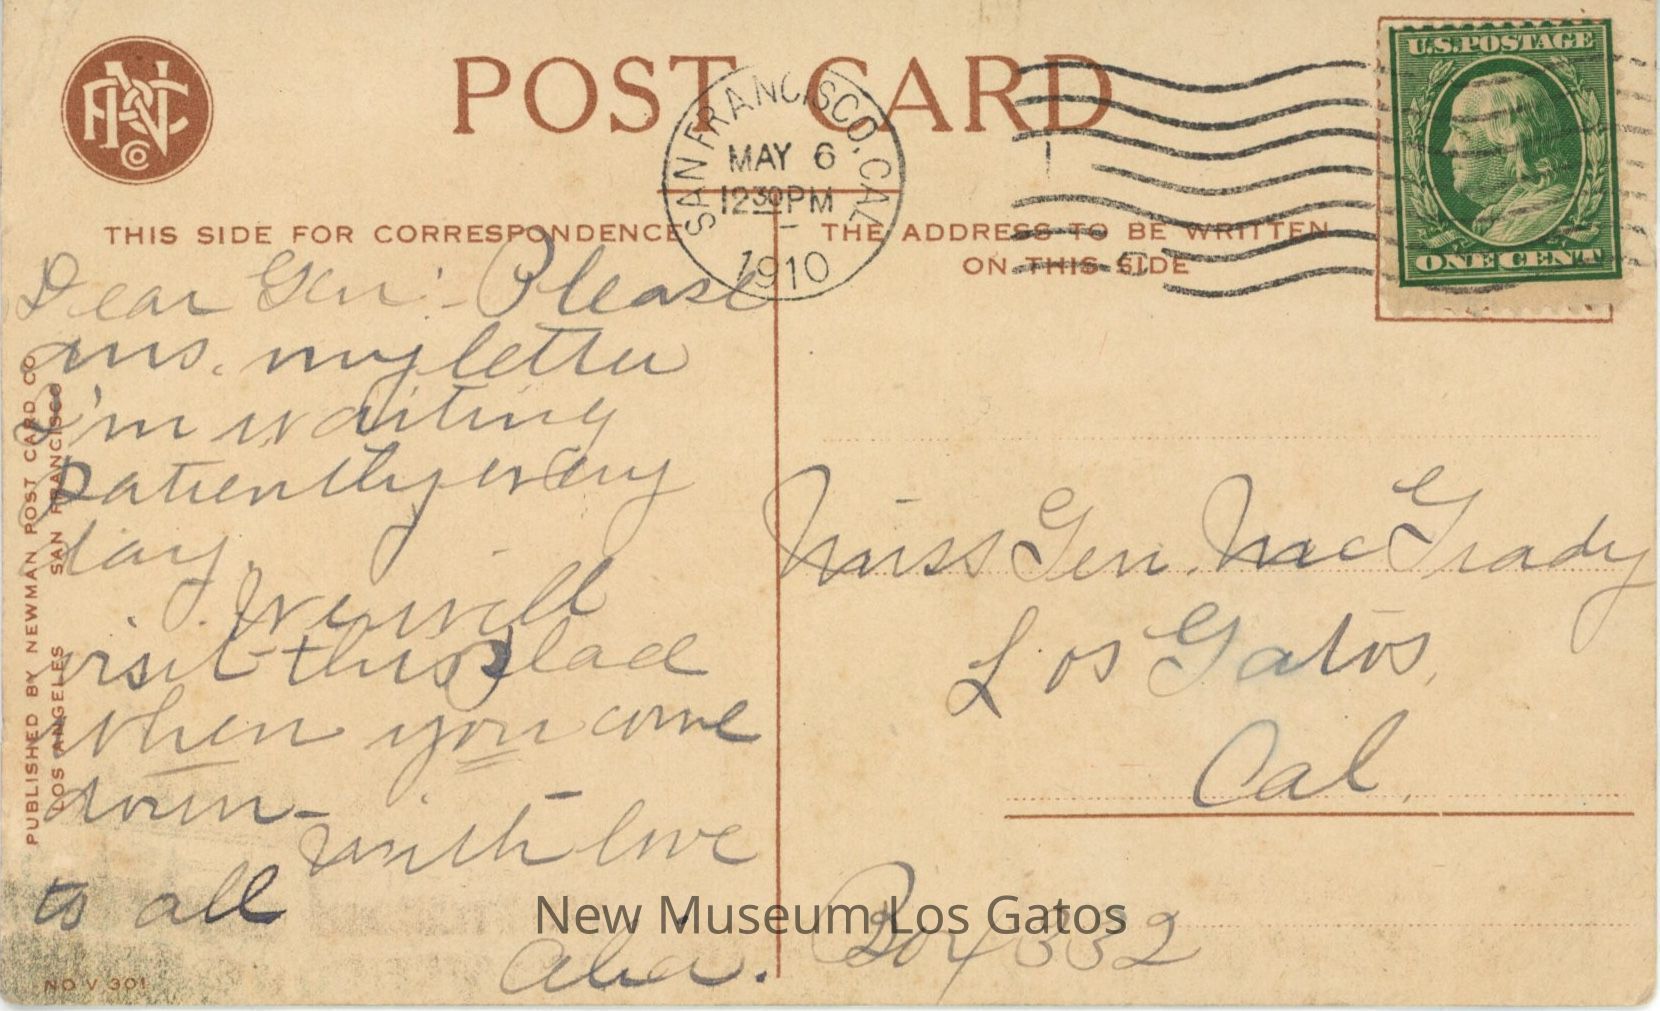 POST CARD
SAN FRANCISCO, CAL.
MAY 6
12 30 PM
1910
U.S. POSTAGE
ONE CENT
THIS SIDE FOR CORRESPONDENCE
THE ADDRESS TO BE WRITTEN
ON THIS SIDE
Dear Gen: - Please
ans. my letter
I'm waiting
patiently every
day.
We will
visit this place
when you come
down -
with love
to all
PUBLISHED BY NEWMAN POST CARD CO
LOS ANGELES SAN FRANCISCO
NO V 301
Miss Gen. McGrady
Los Gatos,
Cal.
Box 332
New Museum Los Gatos